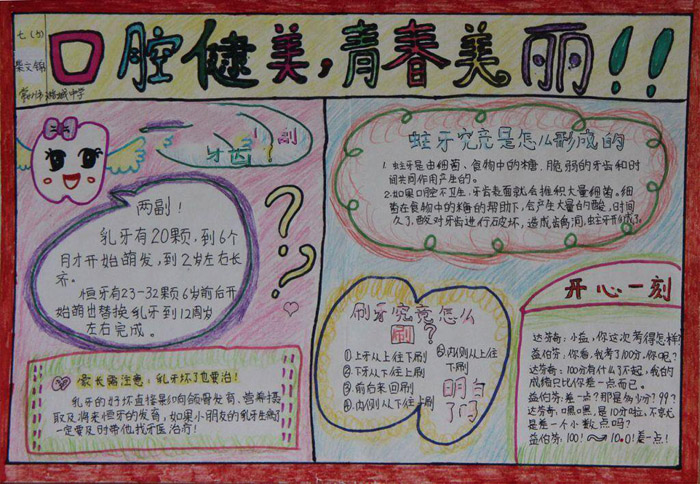 七(5)
口腔健美,青春美丽!!
副
牙齿?
两副!
乳牙有20颗,到6个
月才开始萌发,到2岁左右长
齐。
恒牙有23-32颗6岁前后开
始萌出替换乳牙到12周岁
左右完成。
家长需注意:乳牙坏了也要治!
乳牙的好坏直接影响颌骨发育、营养摄
取及将来恒牙的发育,如果小朋友的乳牙生病了
一定要及时带他找牙医治疗!
蛀牙究竟是怎么形成的
1.蛀牙是由细菌、食物中的糖、脆弱的牙齿和时
间共同作用产生的。
2.如果口腔不卫生,牙齿表面就会堆积大量细菌。细
菌在食物中的糖的帮助下,会产生大量的酸,时间
久了,酸对牙齿进行破坏,造成齿病洞,蛀牙形成了。
刷牙究竟怎么
刷?
①上牙从上往下刷
②下牙从下往上刷
③前后来回刷
④内侧从下往上刷
⑤内侧从上往
下刷
明白
了吗
开心一刻
达芬奇:小益,你这次考得怎样?
益伯芬:你看,我考了100分,你呢?
达芬奇:100分有什么了不起,我的
成绩只比你差一点而已。
益伯芬:差一点?那是多少分?99?
达芬奇:嘿嘿,是10分啦,不就
是差一个小数点吗?
益伯芬:100!~10.0!差一点!